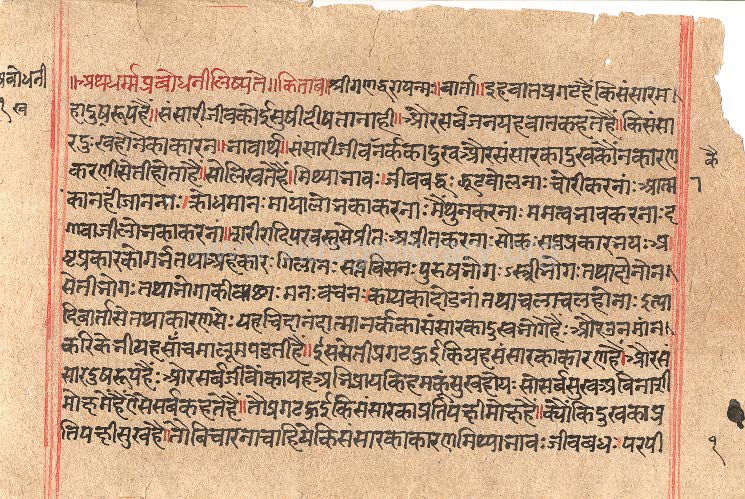 ॥अथधर्म्मप्रबोधनीलिष्यते॥किताब॥श्रीगणधरायनमः॥वार्ता॥इहवातप्रगटहैंकिसंसारम
हादुषरूपहैं॥संसारीजीवकोईसुषीदीषतानाही॥औरसर्वजनयहवातकहतेहैं॥किसंसा
रदुःखहोनेकाकारन॥नावार्थ॥संसारीजीवनर्ककादुखऔरसंसारकादुखकौनकारण
करणीसेतीहोताहैं॥सोलिखतेहैं॥मिथ्याभावः।जीवबद्धः झूटबोलनाः चोरीकरनाः आत्म
कानहीजाननाः।क्रोधमानः मायालोभकाकरनाः मैथुनकरनाः ममत्वभावकरनाः द
गावाजीलोभकाकरनां॥शरीरादिपरवस्तुसेप्रीतः अप्रीतकरनाः सोकः सप्तप्रकारभयः अ
ष्टप्रकारकोगर्भतथाअहंकारः गिलानः सप्तविसनः पुरुषभोगः स्त्रीभोगः तथादोनोन
सेतीभोगः तथाभोगाकीवाछाः मनः बचनः कायकादोडनांतथाचलाचलहोनाः इत्या
दिवार्तासेतथाकारणसेः यहचिदानंदात्मानर्ककासंसारकादुखभोगेहैः औरअनमान
करिकेभीयहसाँचमालूमपडतीहै॥ईससेतीप्रगटहुईकियहसंसारकाकारणहैं॥औरसं
सारदुषरूपहैः औरसर्वजीवोंकायहअभिप्रायकिहमकंसुखहोयः सोसर्वसुखअविनाशी
मोक्षमेंहैंऐसेसर्वकहतेहैं॥तौप्रगटहुईकिसंसारकाप्रतिपक्षीमोक्षहै॥क्योंकिदुखकाप्र
तिपक्षीसुखहै॥तौविचारनाचाहियेकिसंसारकाकारणमिथ्याभावः जीवबधः परपी
प्रबोधनी
१